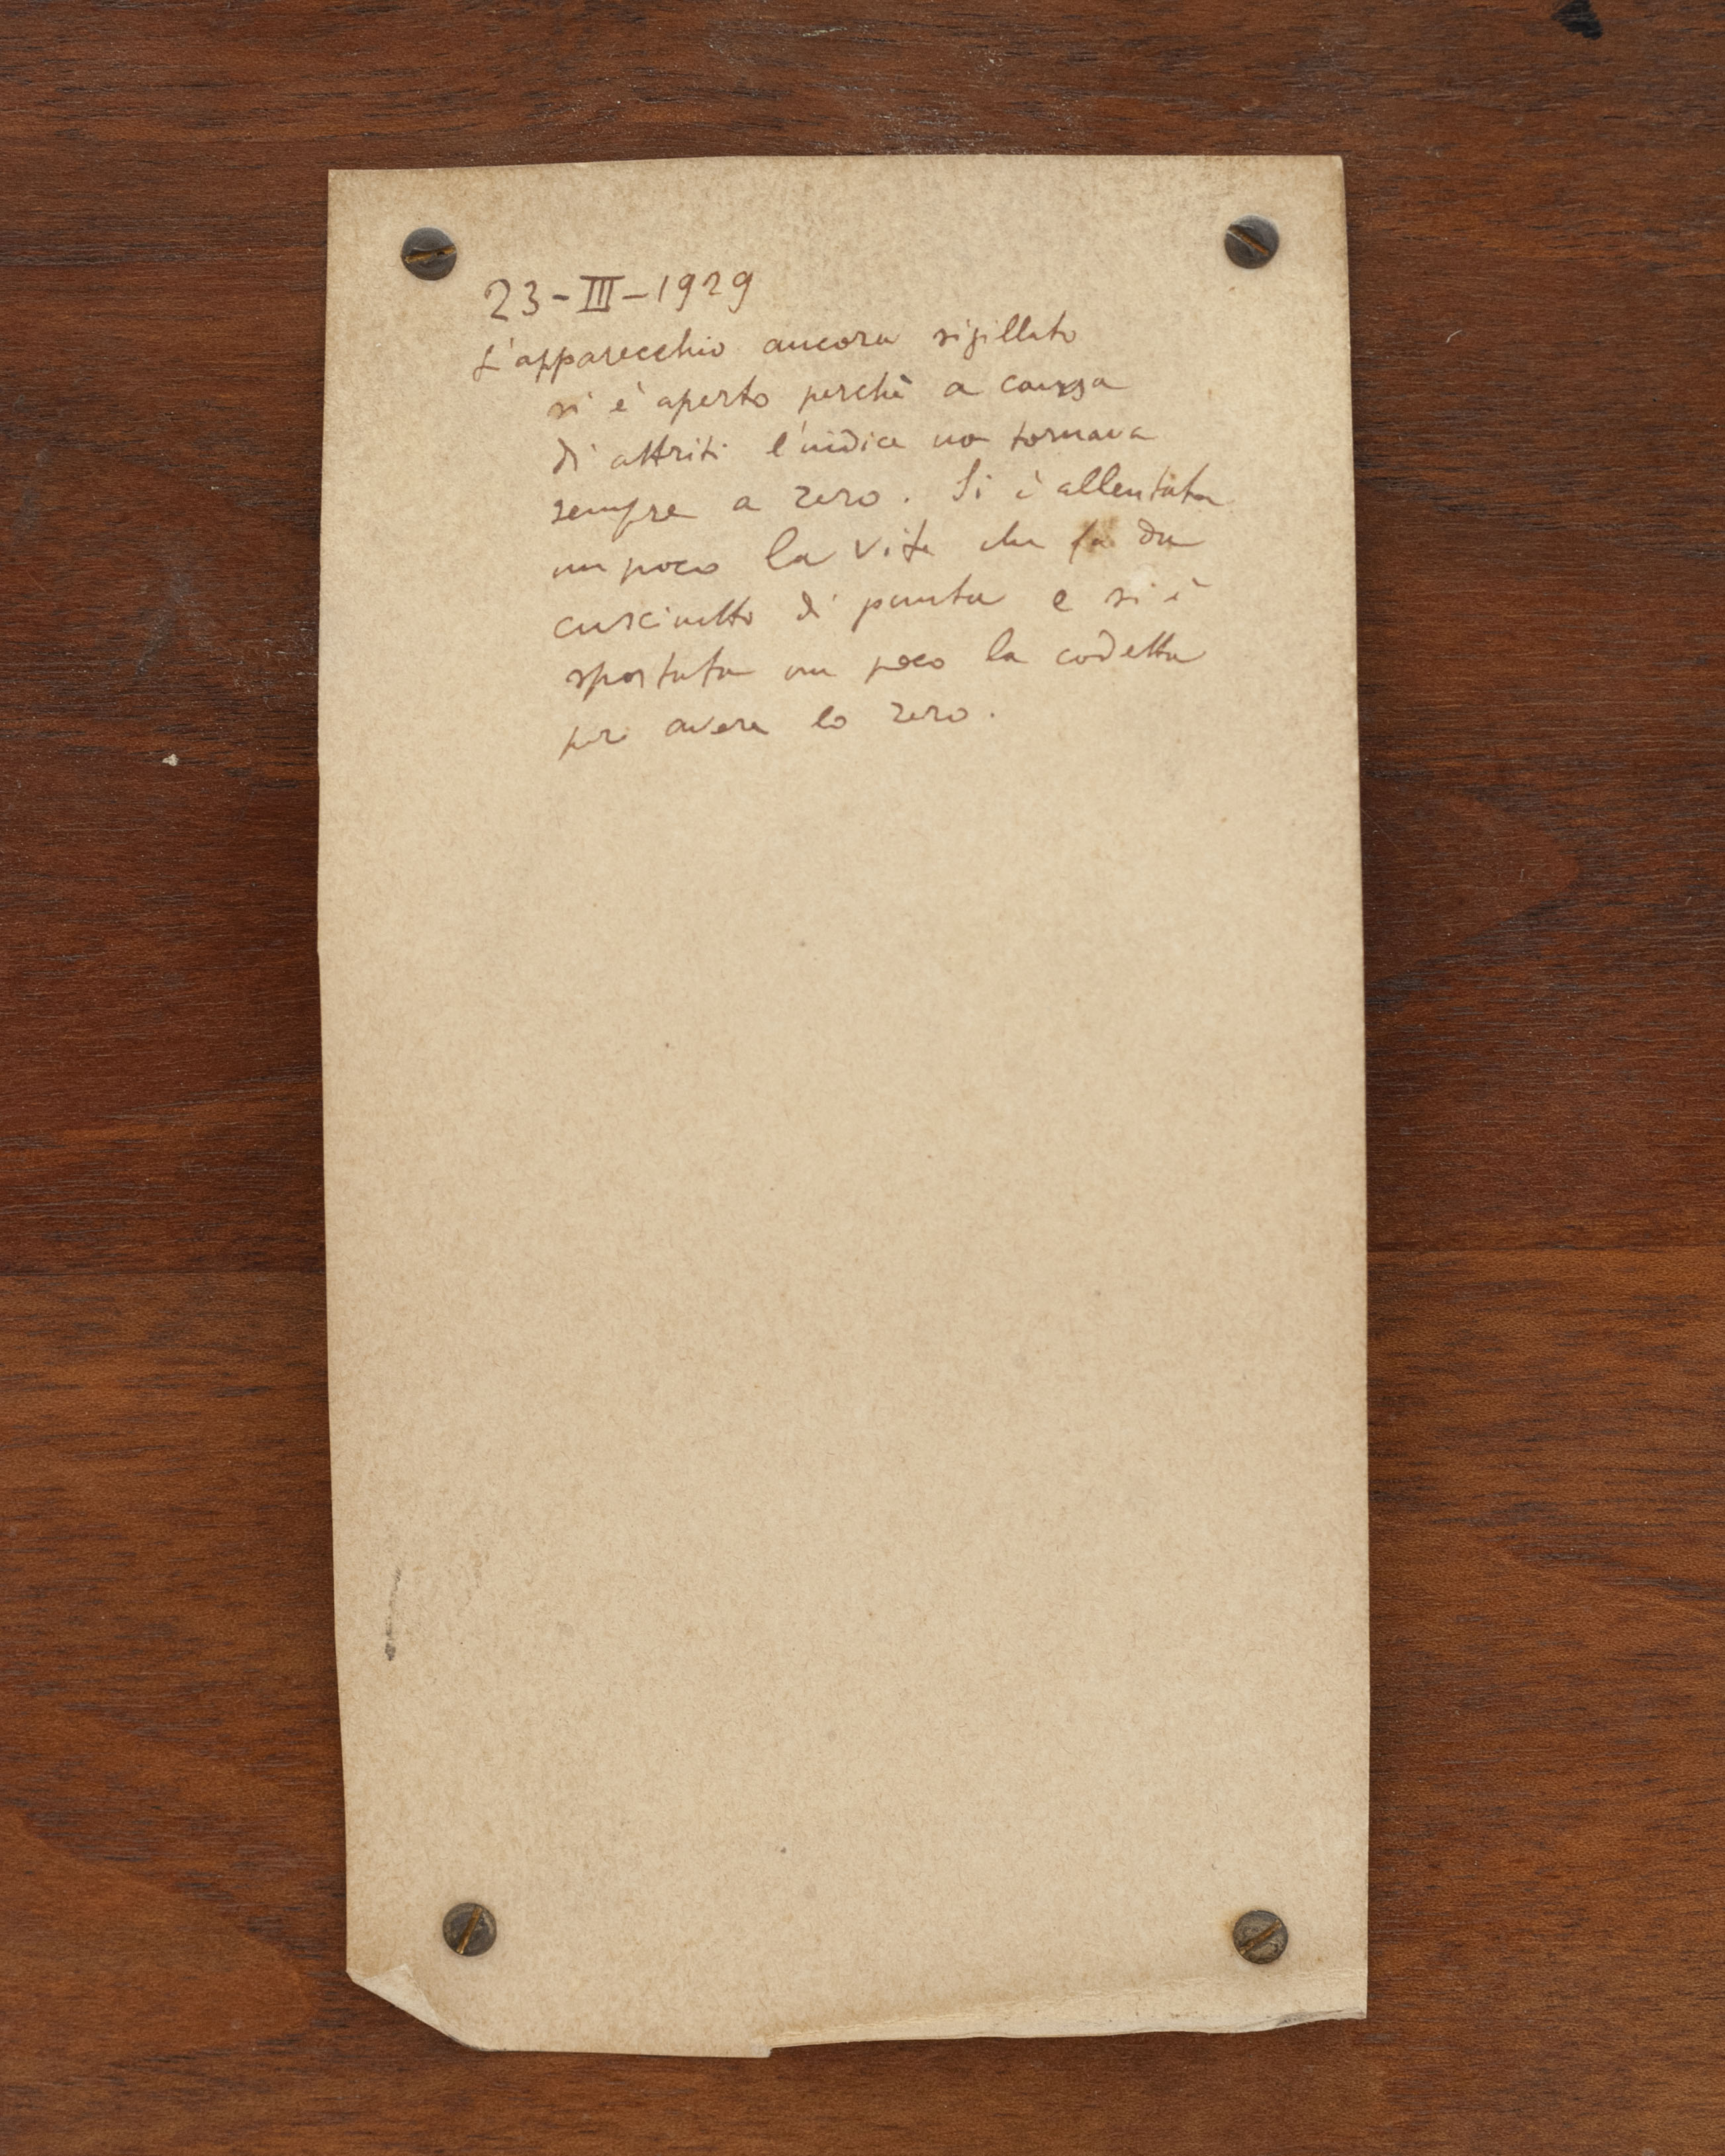 23-III-1929
L'apparecchio ancora sigillato
si è aperto perchè a causa
di attriti l'indice non tornava
sempre a zero. Si è allentata
un poco la vite che fa da
cuscinetto di punta e si è
spostata un poco la codetta
per avere lo zero.